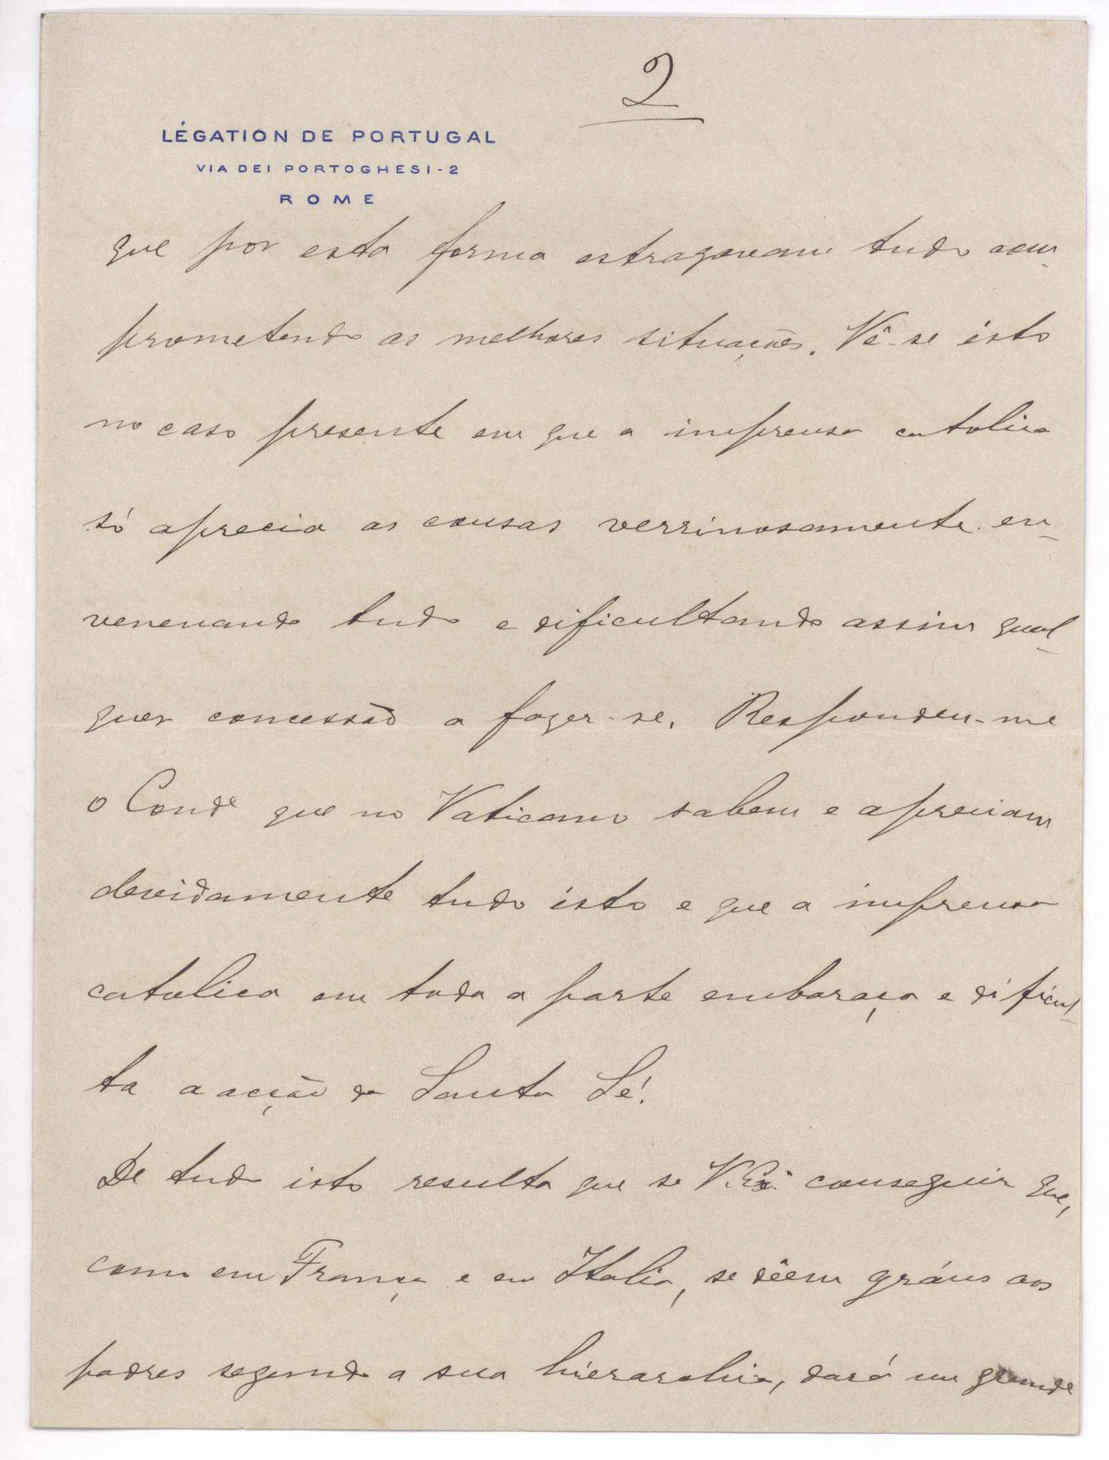 2
LÉGATION DE PORTUGAL
VIA DEI PORTOGHESI - 2
ROME
que por esta forma estragavam tudo com-
prometendo as melhores situações. Vê-se isto
no caso presente em que a imprensa catolica
só aprecia as cousas verrinosamente en-
venenando tudo e dificultando assim qual-
quer concessão a fazer-se. Respondeu-me
o Conde que no Vaticano sabem e apreciam
devidamente tudo isto e que a imprensa
catolica em toda a parte embaraça e dificul-
ta a acção da Santa Sé!
De tudo isto resulta que se V. Exª conseguir que,
como em França e em Italia, se dêem gráus aos
padres segundo a sua hierarchia, dará um grande